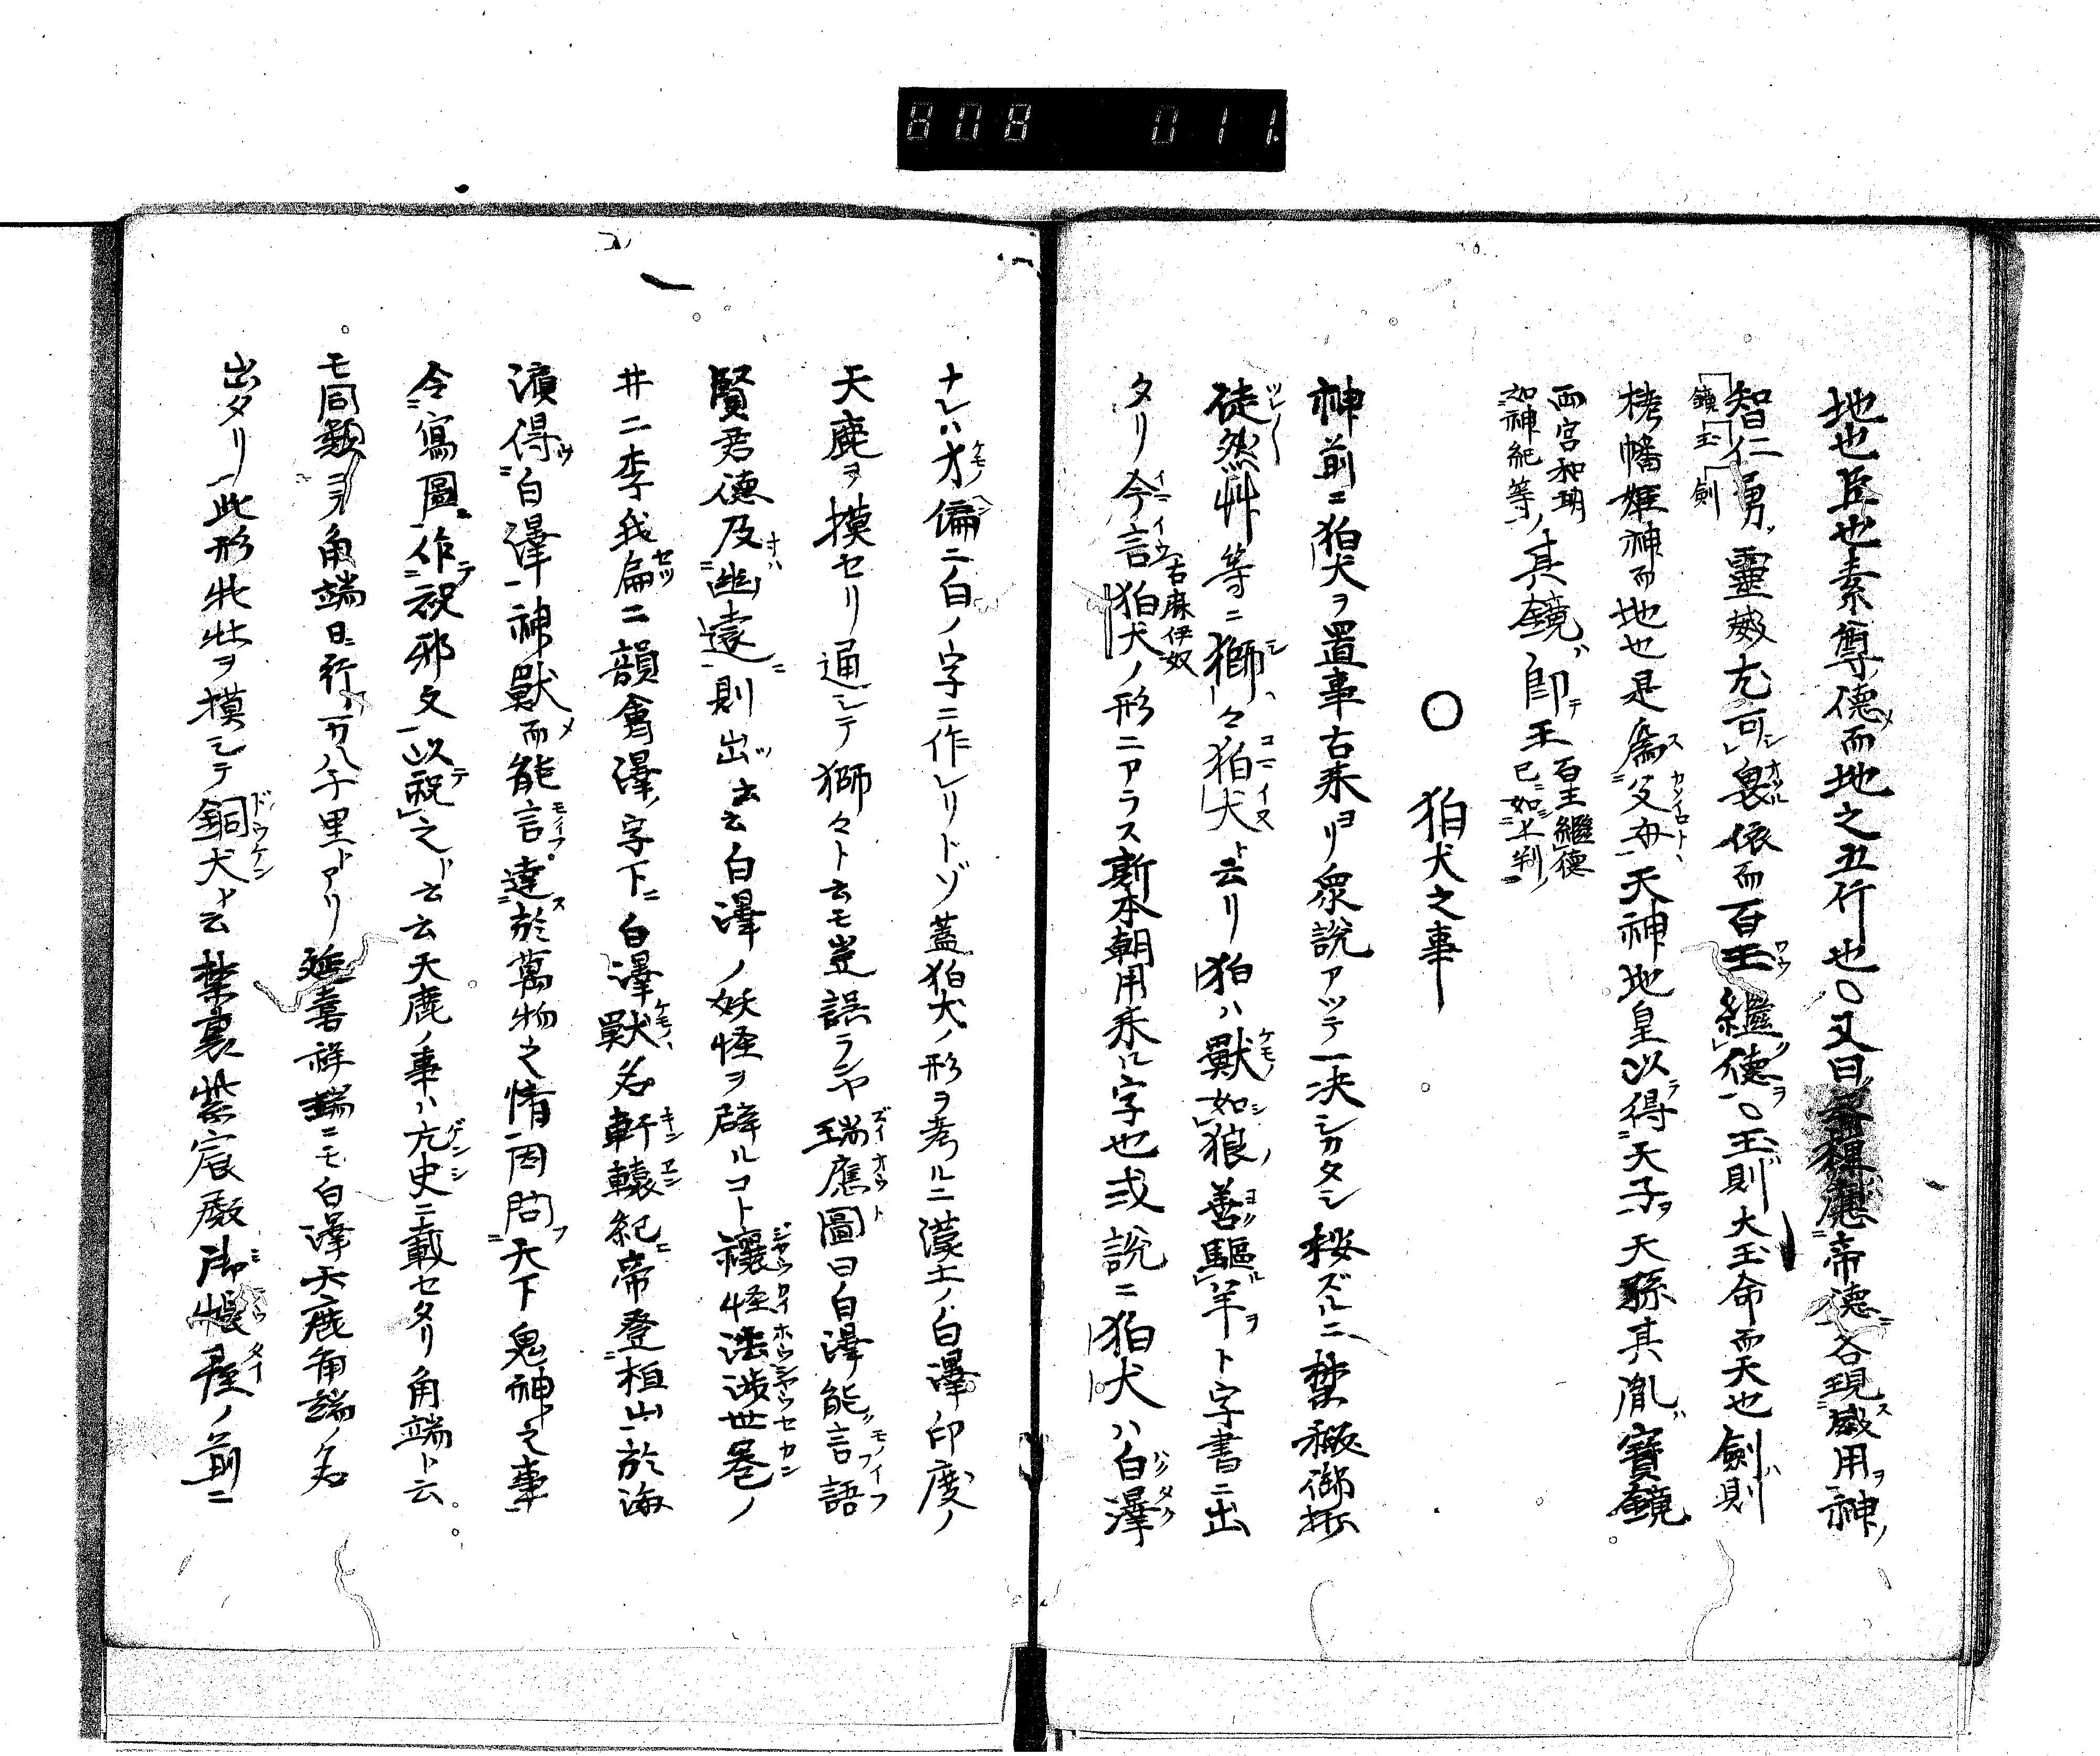 808 011
地也臣也素尊德而地之五行也○又曰帝德各現威用神ノ
智仁勇靈威尤可裏依而百王繼德○玉則大玉命而天也劍則
鏡 玉 劍
栲幡姫神而地也是為父母天神地皇以得天子天孫其胤寶鏡
両宮和
如神紀等ノ其鏡即王百王繼德
已如上判
○狛犬之事
神前ニ狛犬ヲ置事古来ヨリ衆説アツテ一决シカタシ桉ズルニ禁秘御抄
徒然艸等ニ獅々狛犬ト云リ狛ハ獸如狼善驅羊ヲト字書ニ出
タリ今言狛犬ノ形ニアラス斯本朝用来ル字也或説ニ狛犬ハ白澤
古麻伊奴
ナレハ犭偏ニ白ノ字ニ作レリトゾ蓋狛犬ノ形ヲ考ルニ漢土ノ白澤印度ノ
天鹿ヲ摸セリ通シテ獅々ト云モ豈誤ラシヤ瑞應圖曰白澤能言語
賢君德及幽遠則出云云白澤ノ妖怪ヲ辟ルコト禳怪法渉世巻ノ
井ニ李我扁ニ韻會澤ノ字下ニ白澤獸名軒轅紀帝登桓山於海
濱得白澤神獸而能言達於萬物之情因問天下鬼神之事
令寫圖作祝邪文以祝之ト云云天鹿ノ事ハ元史ニ載セタリ角端ト云
モ同類ニテ角端日行一万八千里トアリ延喜祥瑞ニモ白澤天鹿角端ノ名
出タリ此形牝牡ヲ摸シテ銅犬ト云禁裏紫宸殿御帳臺ノ前ニ